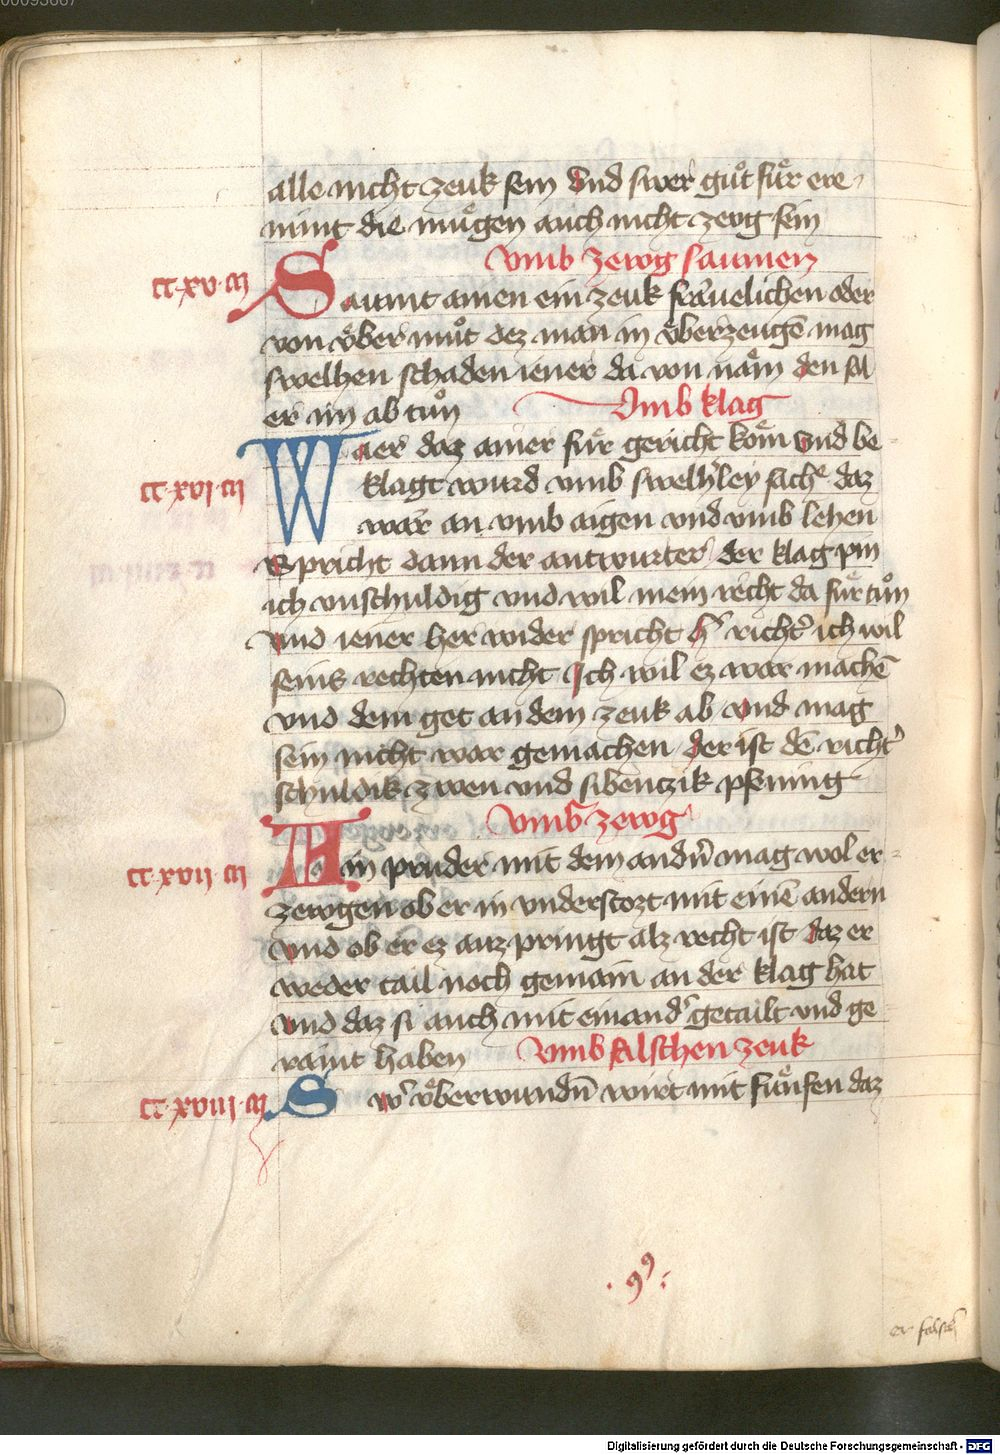 00093667
alle nicht zeuk sein Und swer guͦt fuͤr ere
nimt die muͤgen auch nicht zewg sein
Vmb zewg saumen
cc·xv·
Saumt ainen ein zeuk fraͤuelichen oder
von vͤber muͦt dez man in vͤberzeugē mag
swelhen schaden iener da von naͤm den sol
er im ab tuͦn Vmb klag
cc·xvi·
Waer daz ainer fuͤr gericht koͤm vnd be-
klagt wurd vmb swelh'ley sache daz
waͤr an vmb aigen vnd vmb lehen
Spricht dann der antwurter der klag pin
ich vnschuldig vnd wil mein recht da fuͤr tuͦn
Vnd iener her wider spricht h' richt' ich wil
seins rechten nicht Ich wil ez war machē
vnd dem get an dem zeuk ab vnd mag
sein nicht war gemachen der ist dē richt'
schuldik zwen vnd sibenczik pfening
Vmb zewg
cc·xvii·
Ain pruder mit dem andn̄ mag wol er-
zewgen ob er in vnderstozt mit einē andern
Vnd ob er ez auz pringt alz recht ist daz er
weder tail noch gemain an der klag hat
Vnd daz si auch mit einand' getailt vnd ge
raint haben Vmb falschen zeuk
cc·xviii·
Sw' vͤberwundn̄ wirt mit fuͤnfen daz
er falsch
Digitalisierung gefördert durch die Deutsche Forschungsgemeinschaft - DFG